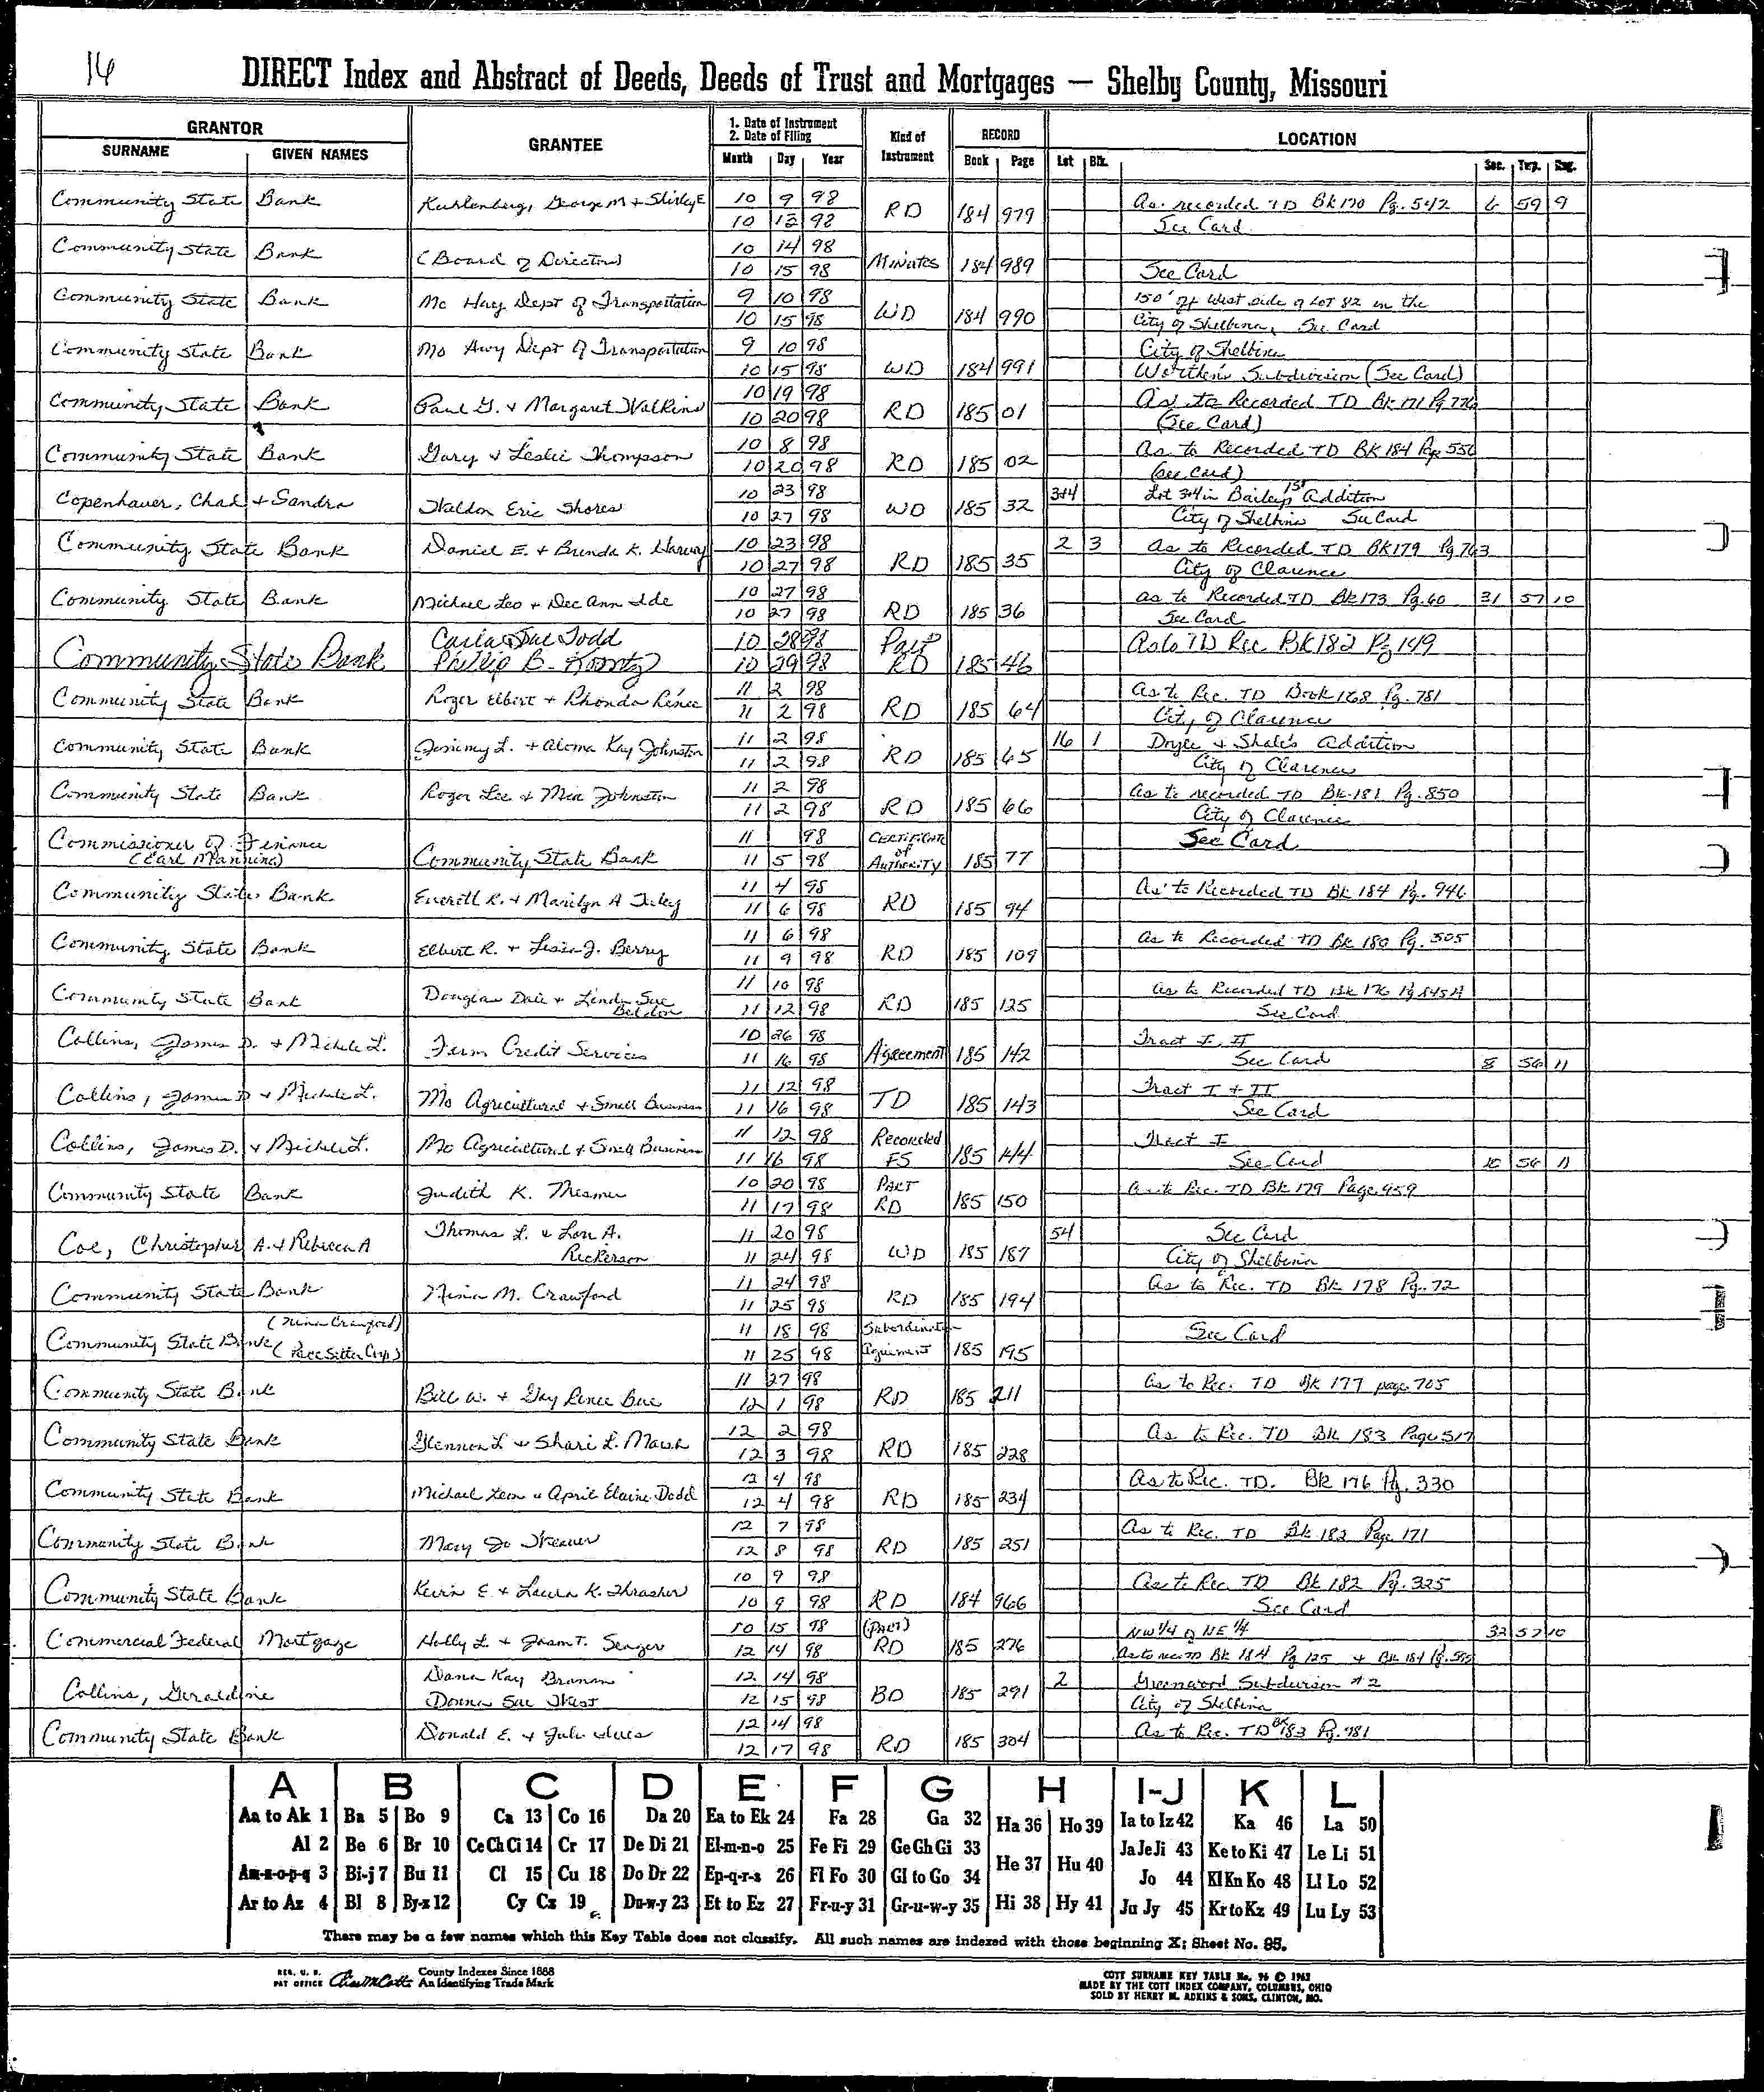 16
DIRECT Index and Abstract of Deeds, Deeds of Trust and Mortgages — Shelby County, Missouri
GRANTOR GRANTEE 1. Date of Instrument 2. Date of Filing Kind of Instrument RECORD LOCATION
SURNAME GIVEN NAMES Month Day Year Book Page Lot Blk. Sec. Twp. Rng.
Community State Bank George M + Shirley E 10 9 98 RD 184 979 As recorded TD Bk 170 Pg. 542 6 59 9
10 13 98 See Card
Community State Bank (Board of Directors) 10 14 98 Minutes 184 989
10 15 98 See Card
Community State Bank Mo Hwy Dept of Transportation 9 10 98 WD 184 990 150' off West side of Lot 82 in the
10 15 98 City of Shelbina, See Card
Community State Bank Mo Hwy Dept of Transportation 9 10 98 WD 184 991 City of Shelbina
10 15 98 Subdivision (See Card)
Community State Bank Paul G. + Margaret Watkins 10 19 98 RD 185 01 As to Recorded TD Bk 171 Pg 776
10 20 98 (See Card)
Community State Bank Gary + Leslie Thompson 10 8 98 RD 185 02 As to Recorded TD BK 184 Pg. 556
10 20 98 (See Card)
Copenhaver, Chad + Sandra Waldon Eric Shores 10 23 98 WD 185 32 3+4 Lot 3+4 in Bailey's 1st Addition
10 27 98 City of Shelbina See Card
Community State Bank Daniel E. + Brenda K. Harvey 10 23 98 RD 185 35 2 3 As to Recorded TD BK 179 Pg 763
10 27 98 City of Clarence
Community State Bank Michael Leo + Dee Ann Ide 10 27 98 RD 185 36 As to Recorded TD Bk 173 Pg. 60 31 57 10
10 27 98 See Card
Community State Bank Carla Sue Todd 10 28 98 Part As to TD Rec Bk 182 Pg 149
Phillip B. Koontz 10 29 98 RD 185 46
Community State Bank Roger Elbert + Rhonda Renee 11 2 98 RD 185 64 As to Rec. TD Book 168 Pg. 781
11 2 98 City of Clarence
Community State Bank Jimmy L. + Aloma Kay Johnston 11 2 98 RD 185 65 16 1 Addition
11 2 98 City of Clarence
Community State Bank Roger Lee + Johnston 11 2 98 RD 185 66 As to recorded TD Bk 181 Pg. 850
11 2 98 City of Clarence
Commissioner of Finance 11 98 Certificate of Authority See Card
(Earl Manning) Community State Bank 11 5 98 185 77
Community State Bank Everett R. + Marilyn A 11 4 98 RD 185 94 As to Recorded TD Bk 184 Pg. 946
11 6 98
Community State Bank Elbert R. + J. Berry 11 6 98 RD 185 109 As to Recorded TD Bk 180 Pg. 505
11 9 98
Community State Bank Douglas Dale + Linda Sue 11 10 98 RD 185 125 As to Recorded TD Bk 176 Pg 845A
11 12 98 See Card
Collins, James D. + Michele L. Farm Credit Services 10 26 98 Agreement 185 142 Tract I, II
11 16 98 See Card 8 56 11
Collins, James D + Michele L. Mo Agricultural + Small Business 11 12 98 TD 185 143 Tract I + II
11 16 98 See Card
Collins, James D. + Michele L. Mo Agricultural + Small Business 11 12 98 Recorded Tract I
11 16 98 FS 185 144 See Card 10 56 11
Community State Bank Judith K. 10 20 98 Part As to Rec. TD Bk 179 Page 959
11 17 98 RD 185 150
Coe, Christopher A. + Rebecca A Thomas L. + Lori A. 11 20 98 54 See Card
Rickerson 11 24 98 WD 185 187 City of Shelbina
Community State Bank Nina M. Crawford 11 24 98 RD 185 194 As to Rec. TD Bk 178 Pg. 72
11 25 98
Community State Bank (Nina Crawford) 11 18 98 Subordination See Card
(Pace Setter Corp) 11 25 98 Agreement 185 195
Community State Bank Bill W. + Gay Renee 11 27 98 RD 185 211 As to Rec. TD Bk 177 page 705
12 1 98
Community State Bank Glennon L + Shari L. Marsh 12 2 98 RD 185 228 As to Rec. TD Bk 183 Page 517
12 3 98
Community State Bank Michael Leon + April Elaine Dodd 12 4 98 RD 185 234 As to Rec. TD. Bk 176 Pg. 330
12 4 98
Community State Bank Mary Jo 12 7 98 RD 185 251 As to Rec. TD Bk 182 Page 171
12 8 98
Community State Bank Kevin E. + Laura K. Thrasher 10 9 98 RD 184 966 As to Rec. TD Bk 182 Pg. 325
10 9 98 See Card
Commercial Federal Mortgage Holly L. + Jason T. 10 15 98 (Part) NW 1/4 of NE 1/4 32 57 10
12 14 98 RD 185 276 As to rec TD Bk 184 Pg 125 + Bk 184 Pg.
Collins, Geraldine Dana Kay 12 14 98 BD 185 291 2 Greenwood Subdivision #2
Donna Sue West 12 15 98 City of Shelbina
Community State Bank Donald E. + Julie 12 14 98 RD 185 304 As to Rec. TD Bk 183 Pg. 981
12 17 98
A B C D E F G H I-J K L
Aa to Ak 1 Ba 5 Bo 9 Ca 13 Co 16 Da 20 Ea to Ek 24 Fa 28 Ga 32 Ha 36 Ho 39 Ia to Iz 42 Ka 46 La 50
Al 2 Be 6 Br 10 Ce Ch Ci 14 Cr 17 De Di 21 El-m-n-o 25 Fe Fi 29 Ge Gh Gi 33 He 37 Hu 40 Ja Je Ji 43 Ke to Ki 47 Le Li 51
Am-n-o-p-q 3 Bi-j 7 Bu 11 Cl 15 Cu 18 Do Dr 22 Ep-q-r-s 26 Fl Fo 30 Gl to Go 34 Jo 44 Kl Kn Ko 48 Ll Lo 52
Ar to Az 4 Bl 8 By-z 12 Cy Cz 19 Du-w-y 23 Et to Ez 27 Fr-u-y 31 Gr-u-w-y 35 Hi 38 Hy 41 Ju Jy 45 Kr to Kz 49 Lu Ly 53
There may be a few names which this Key Table does not classify. All such names are indexed with those beginning X; Sheet No. 85.
REG. U. S. PAT OFFICE County Indexes Since 1888 An Identifying Trade Mark
COTT SURNAME KEY TABLE No. 96 © 1962
MADE BY THE COTT INDEX COMPANY, COLUMBUS, OHIO
SOLD BY HENRY M. ADKINS & SONS, CLINTON, MO.